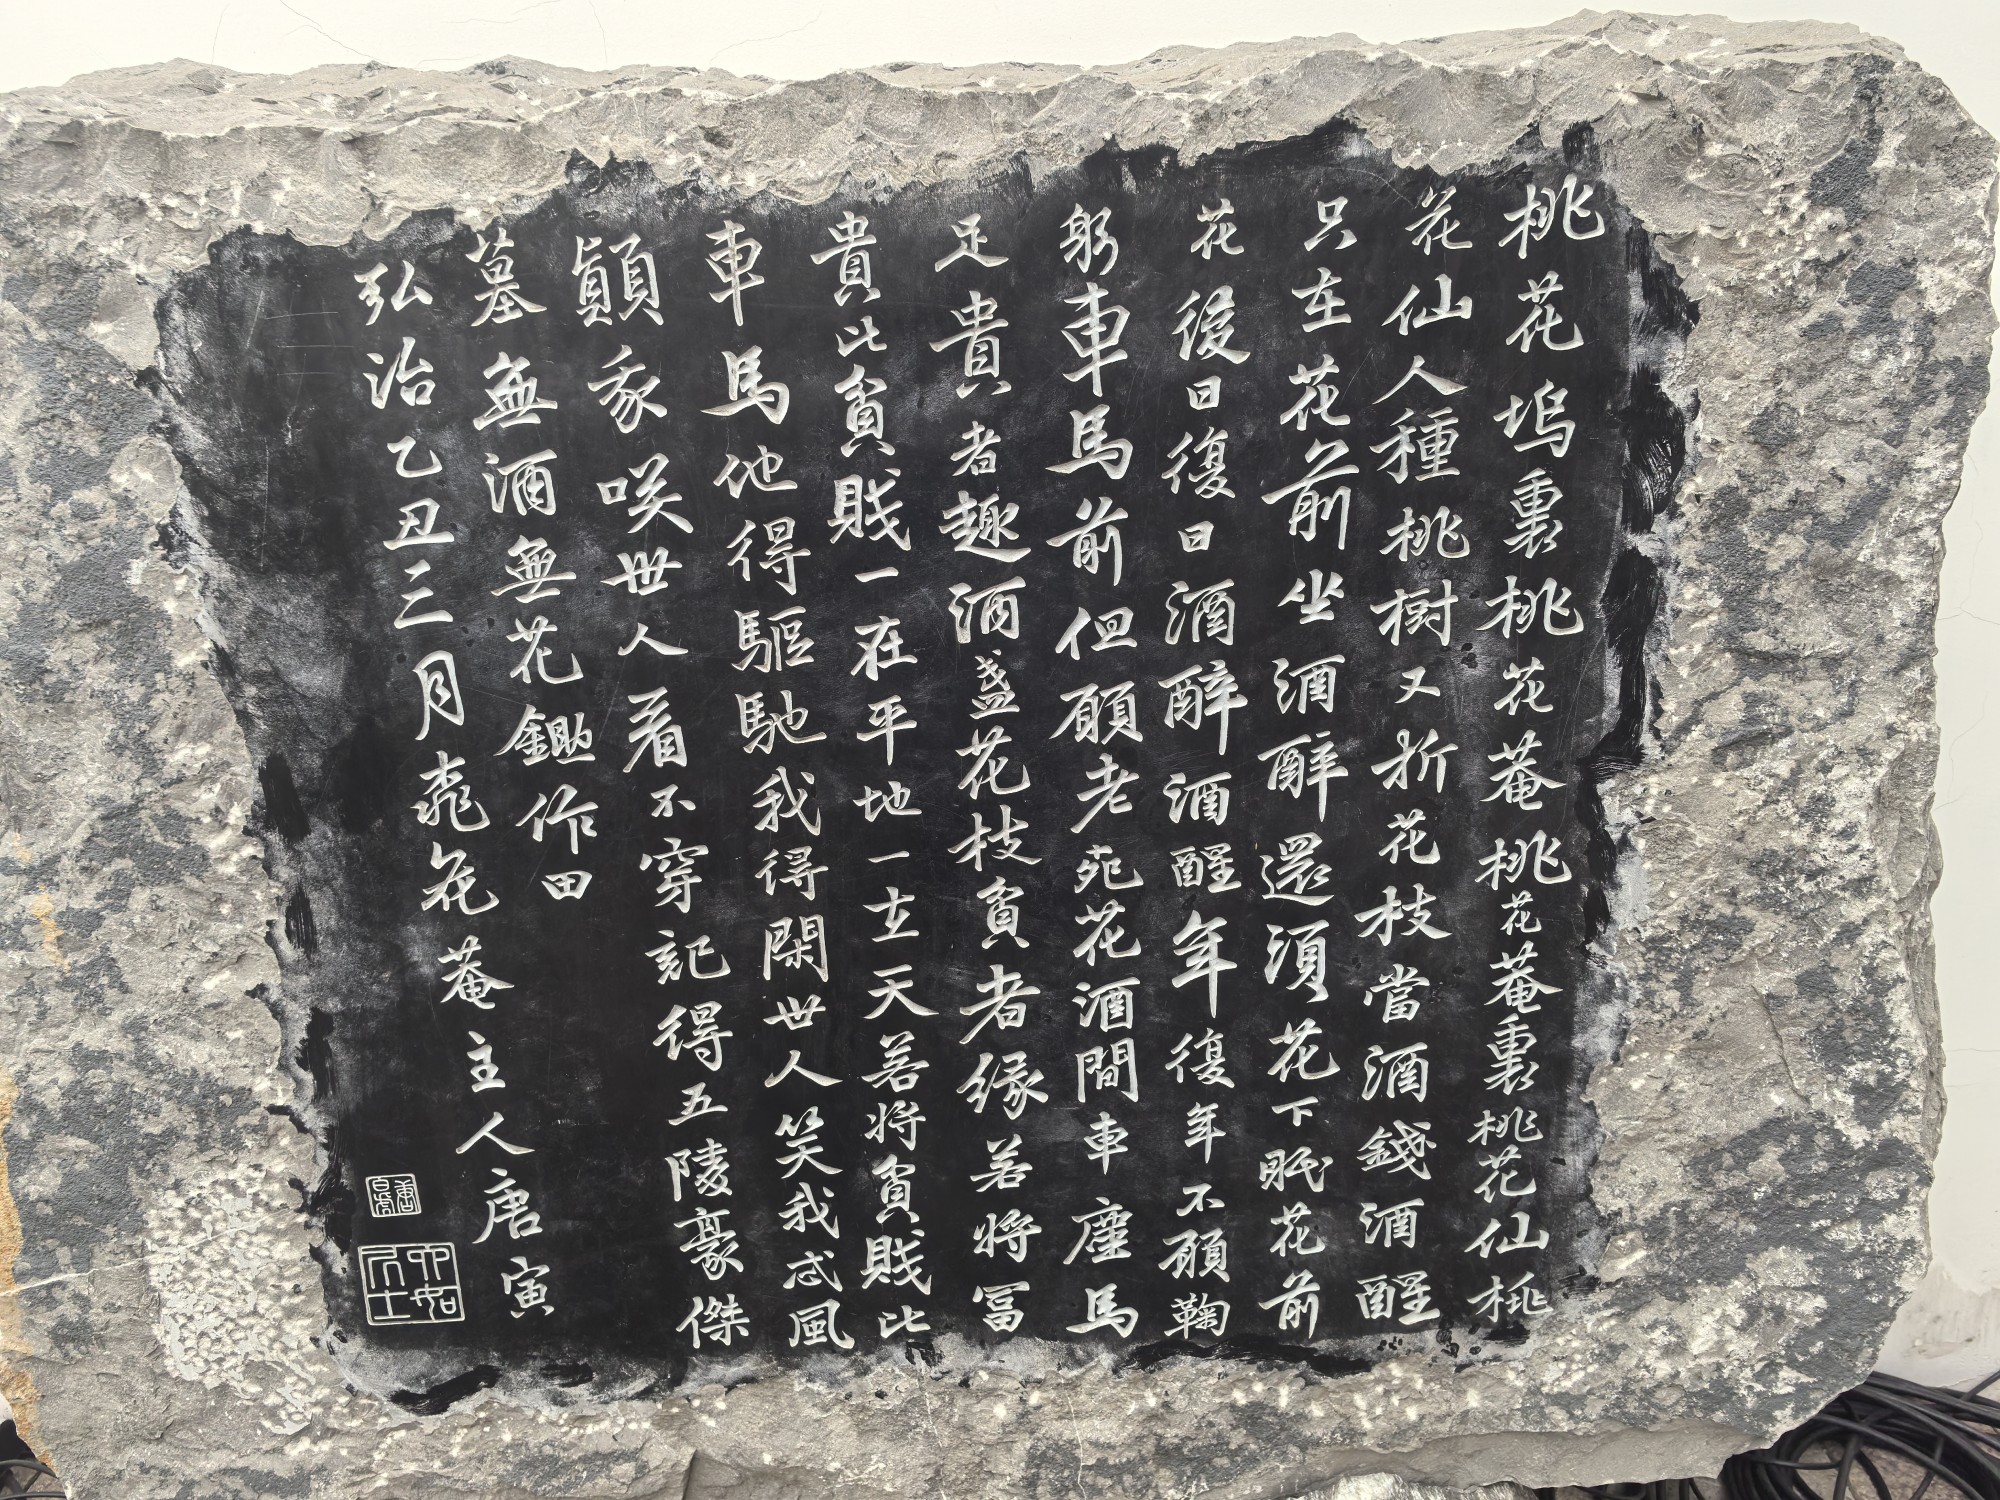 桃花塢裏桃花菴桃花菴裏桃花仙桃
花仙人種桃樹又折花枝當酒錢酒醒
只在花前坐酒醉還須花下眠花前
花後日復日酒醉酒醒年復年不願鞠
躬車馬前但願老死花酒間車塵馬
足貴者趣酒盞花枝貧者緣若將富
貴比貧賤一在平地一在天若將貧賤比
車馬他得驅馳我得閑世人笑我忒風
顛我咲世人看不穿記得五陵豪傑
墓無酒無花鋤作田
弘治乙丑三月桃花菴主人唐寅
六如居士